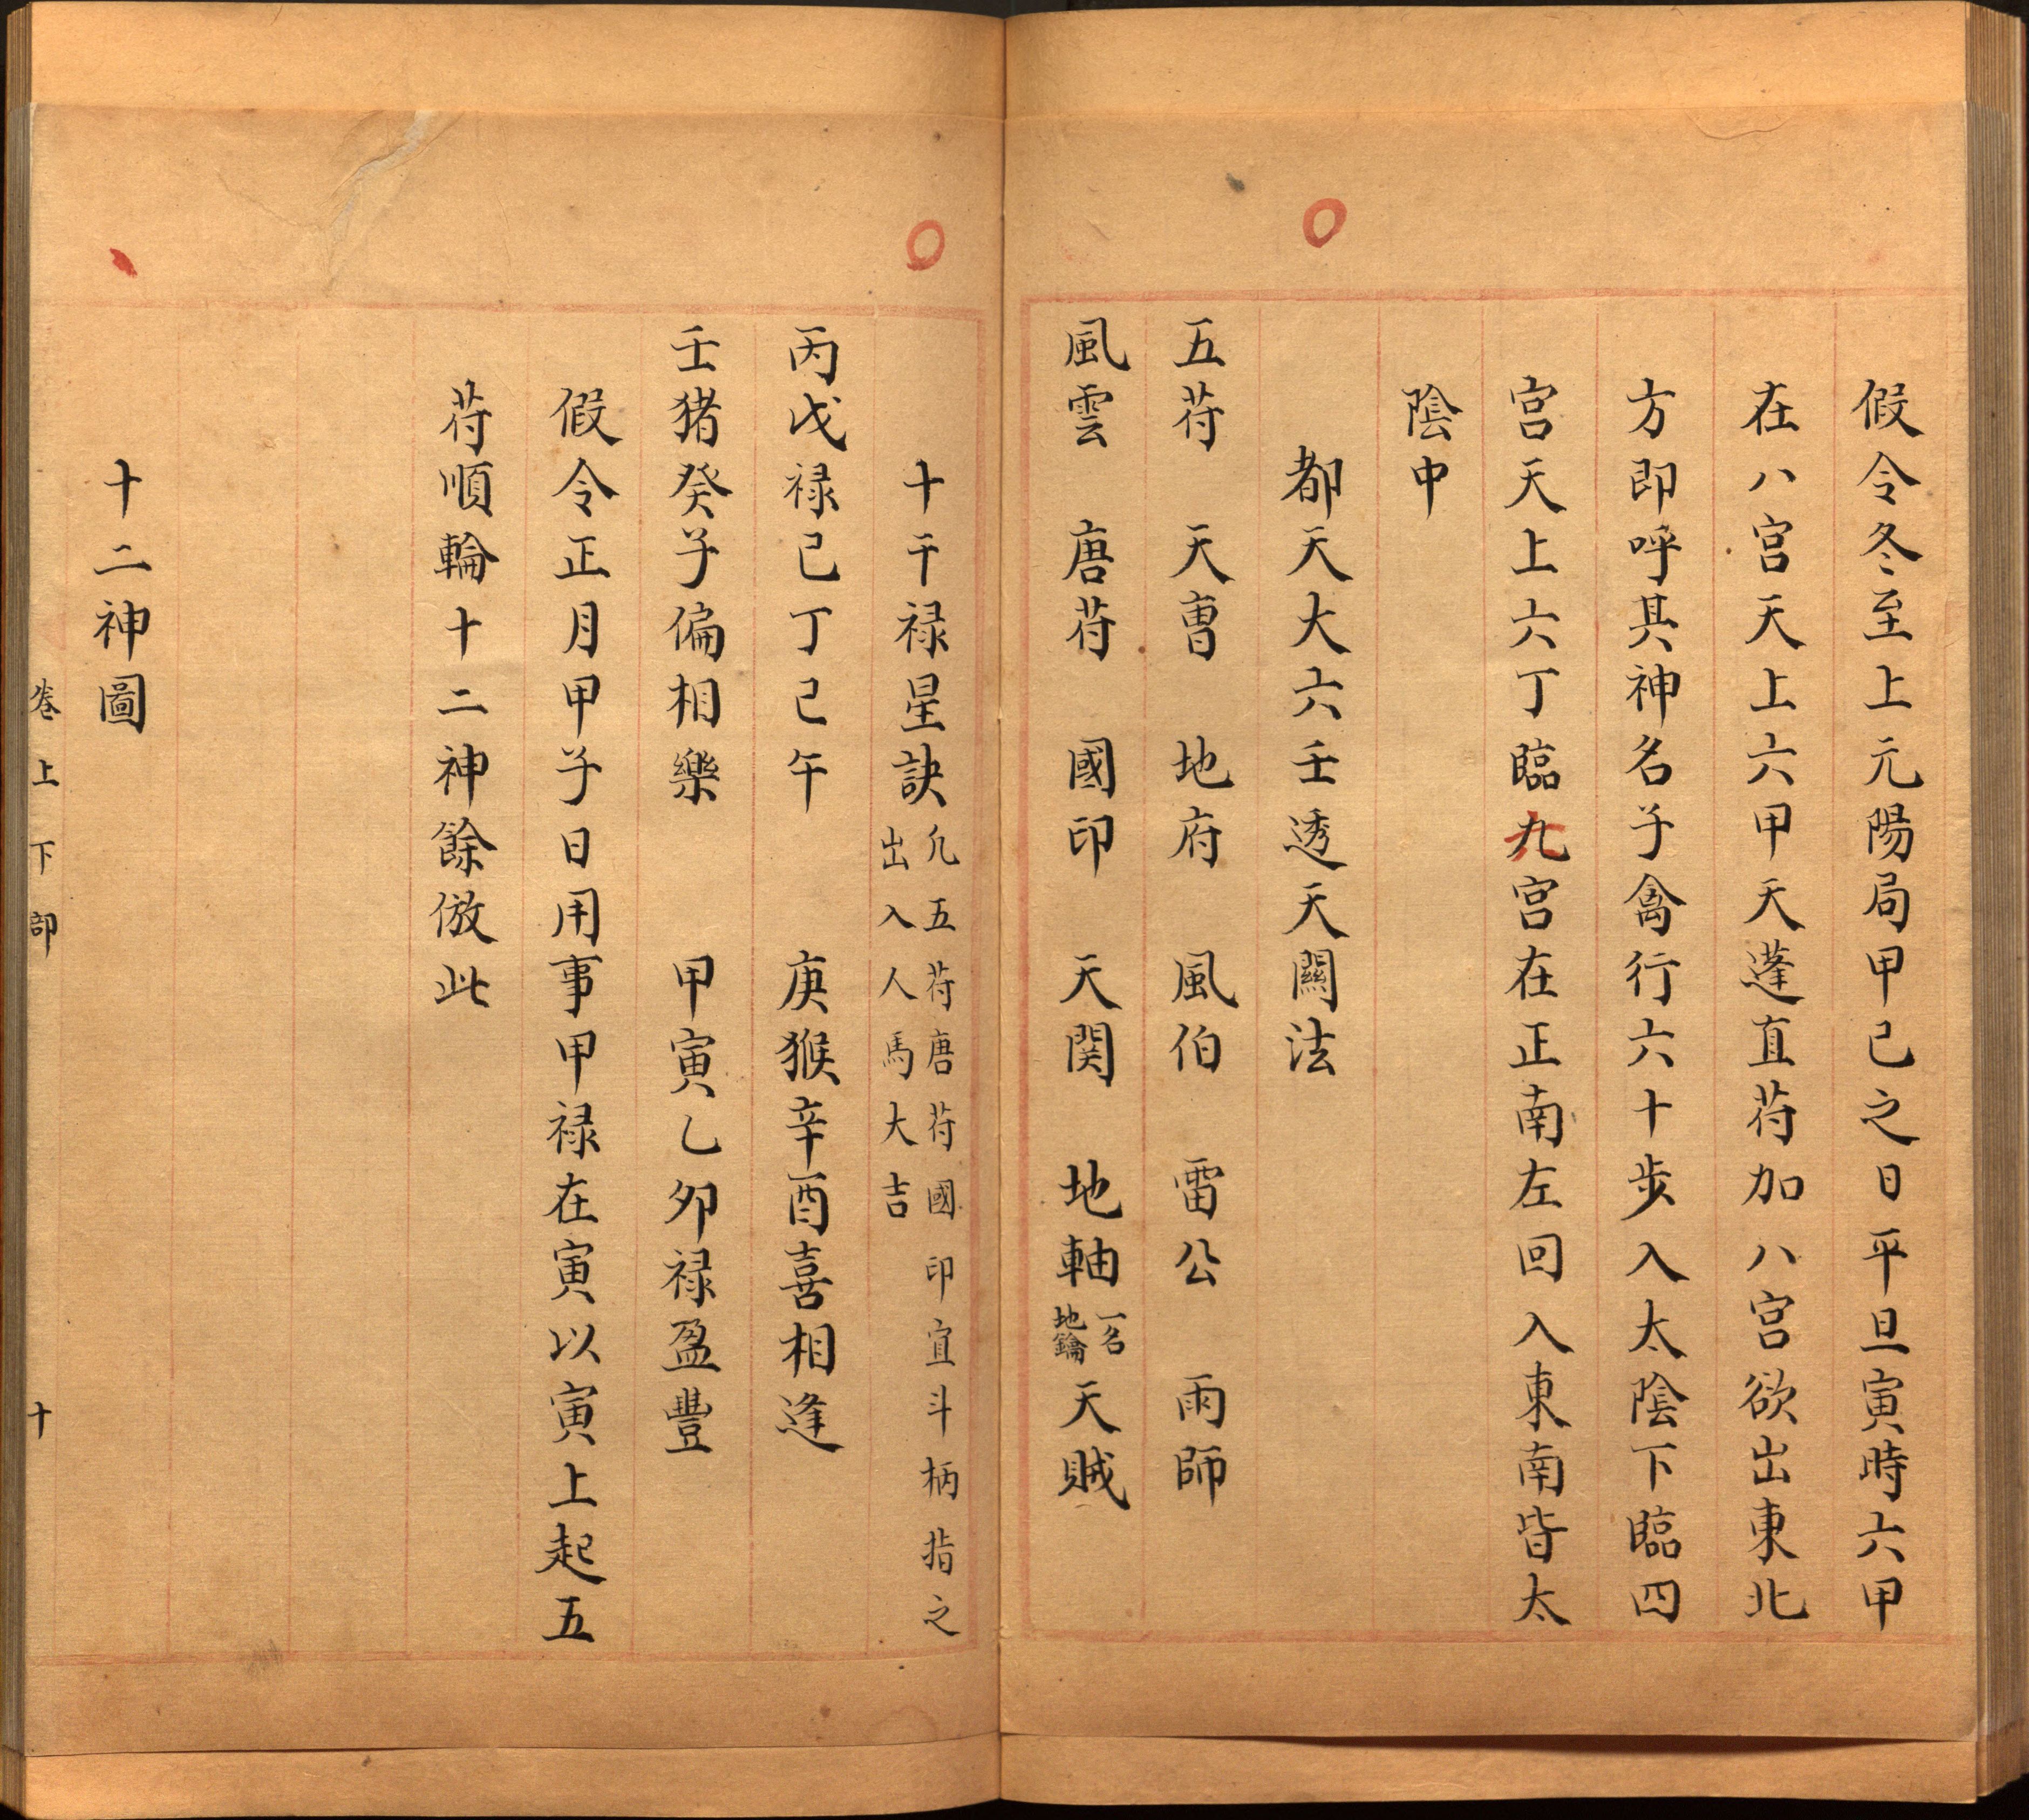 假令冬至上元陽局甲己之日平旦寅時六甲
在八宫天上六甲天蓬直苻加八宫欲出東北
方即呼其神名子禽行六十步入太陰下臨四
宫天上六丁臨九宫在正南左回入東南皆太
陰中
都天大六壬透天關法
五苻 天曹 地府 風伯 雷公 雨師
風雲 唐苻 國印 天関 地軸 一名地鑰 天賊
十干禄星訣 凢五苻唐苻國印宜斗柄指之出入人馬大吉
丙戊禄巳丁己午 庚猴辛酉喜相逢
壬猪癸子偏相樂 甲寅乙夘禄盈豐
假令正月甲子日用事甲禄在寅以寅上起五
苻順輪十二神餘倣此
十二神圖
卷上下部 十